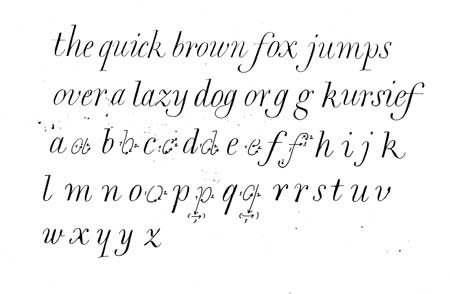 the quick brown fox jumps
over a lazy dog or g g kursief
a a b b c c d d e e f f h i j k
l m n o o p p q q r r s t u v
w x q y z